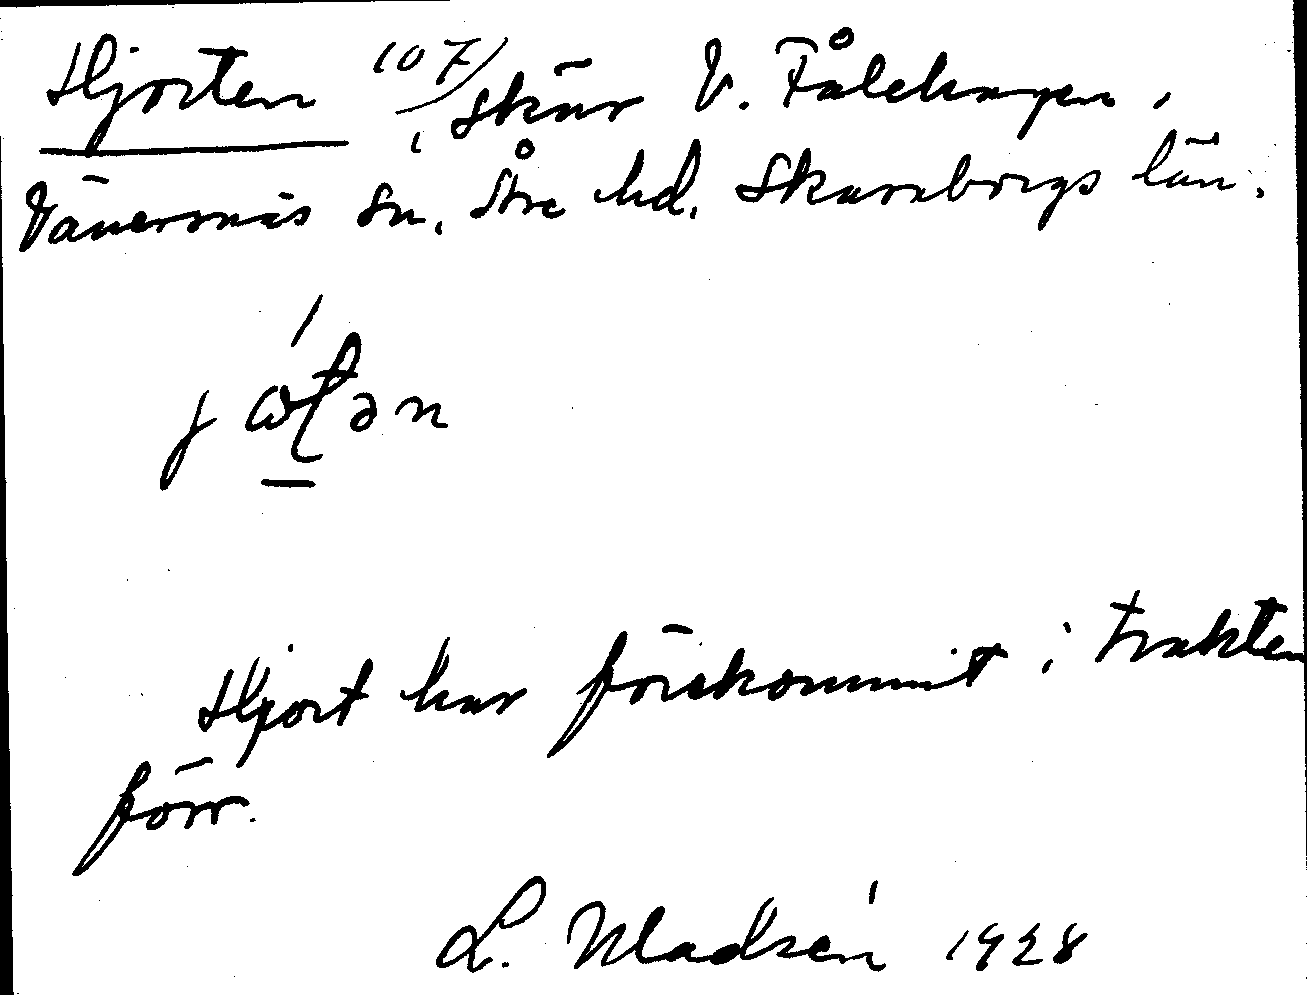 Hjorten 107/, skär V. Fålehagen,
Vänersnäs sn, Åse hd, Skaraborgs län.
Hjort har förekommit i trakten
förr.
L. Madsén 1928